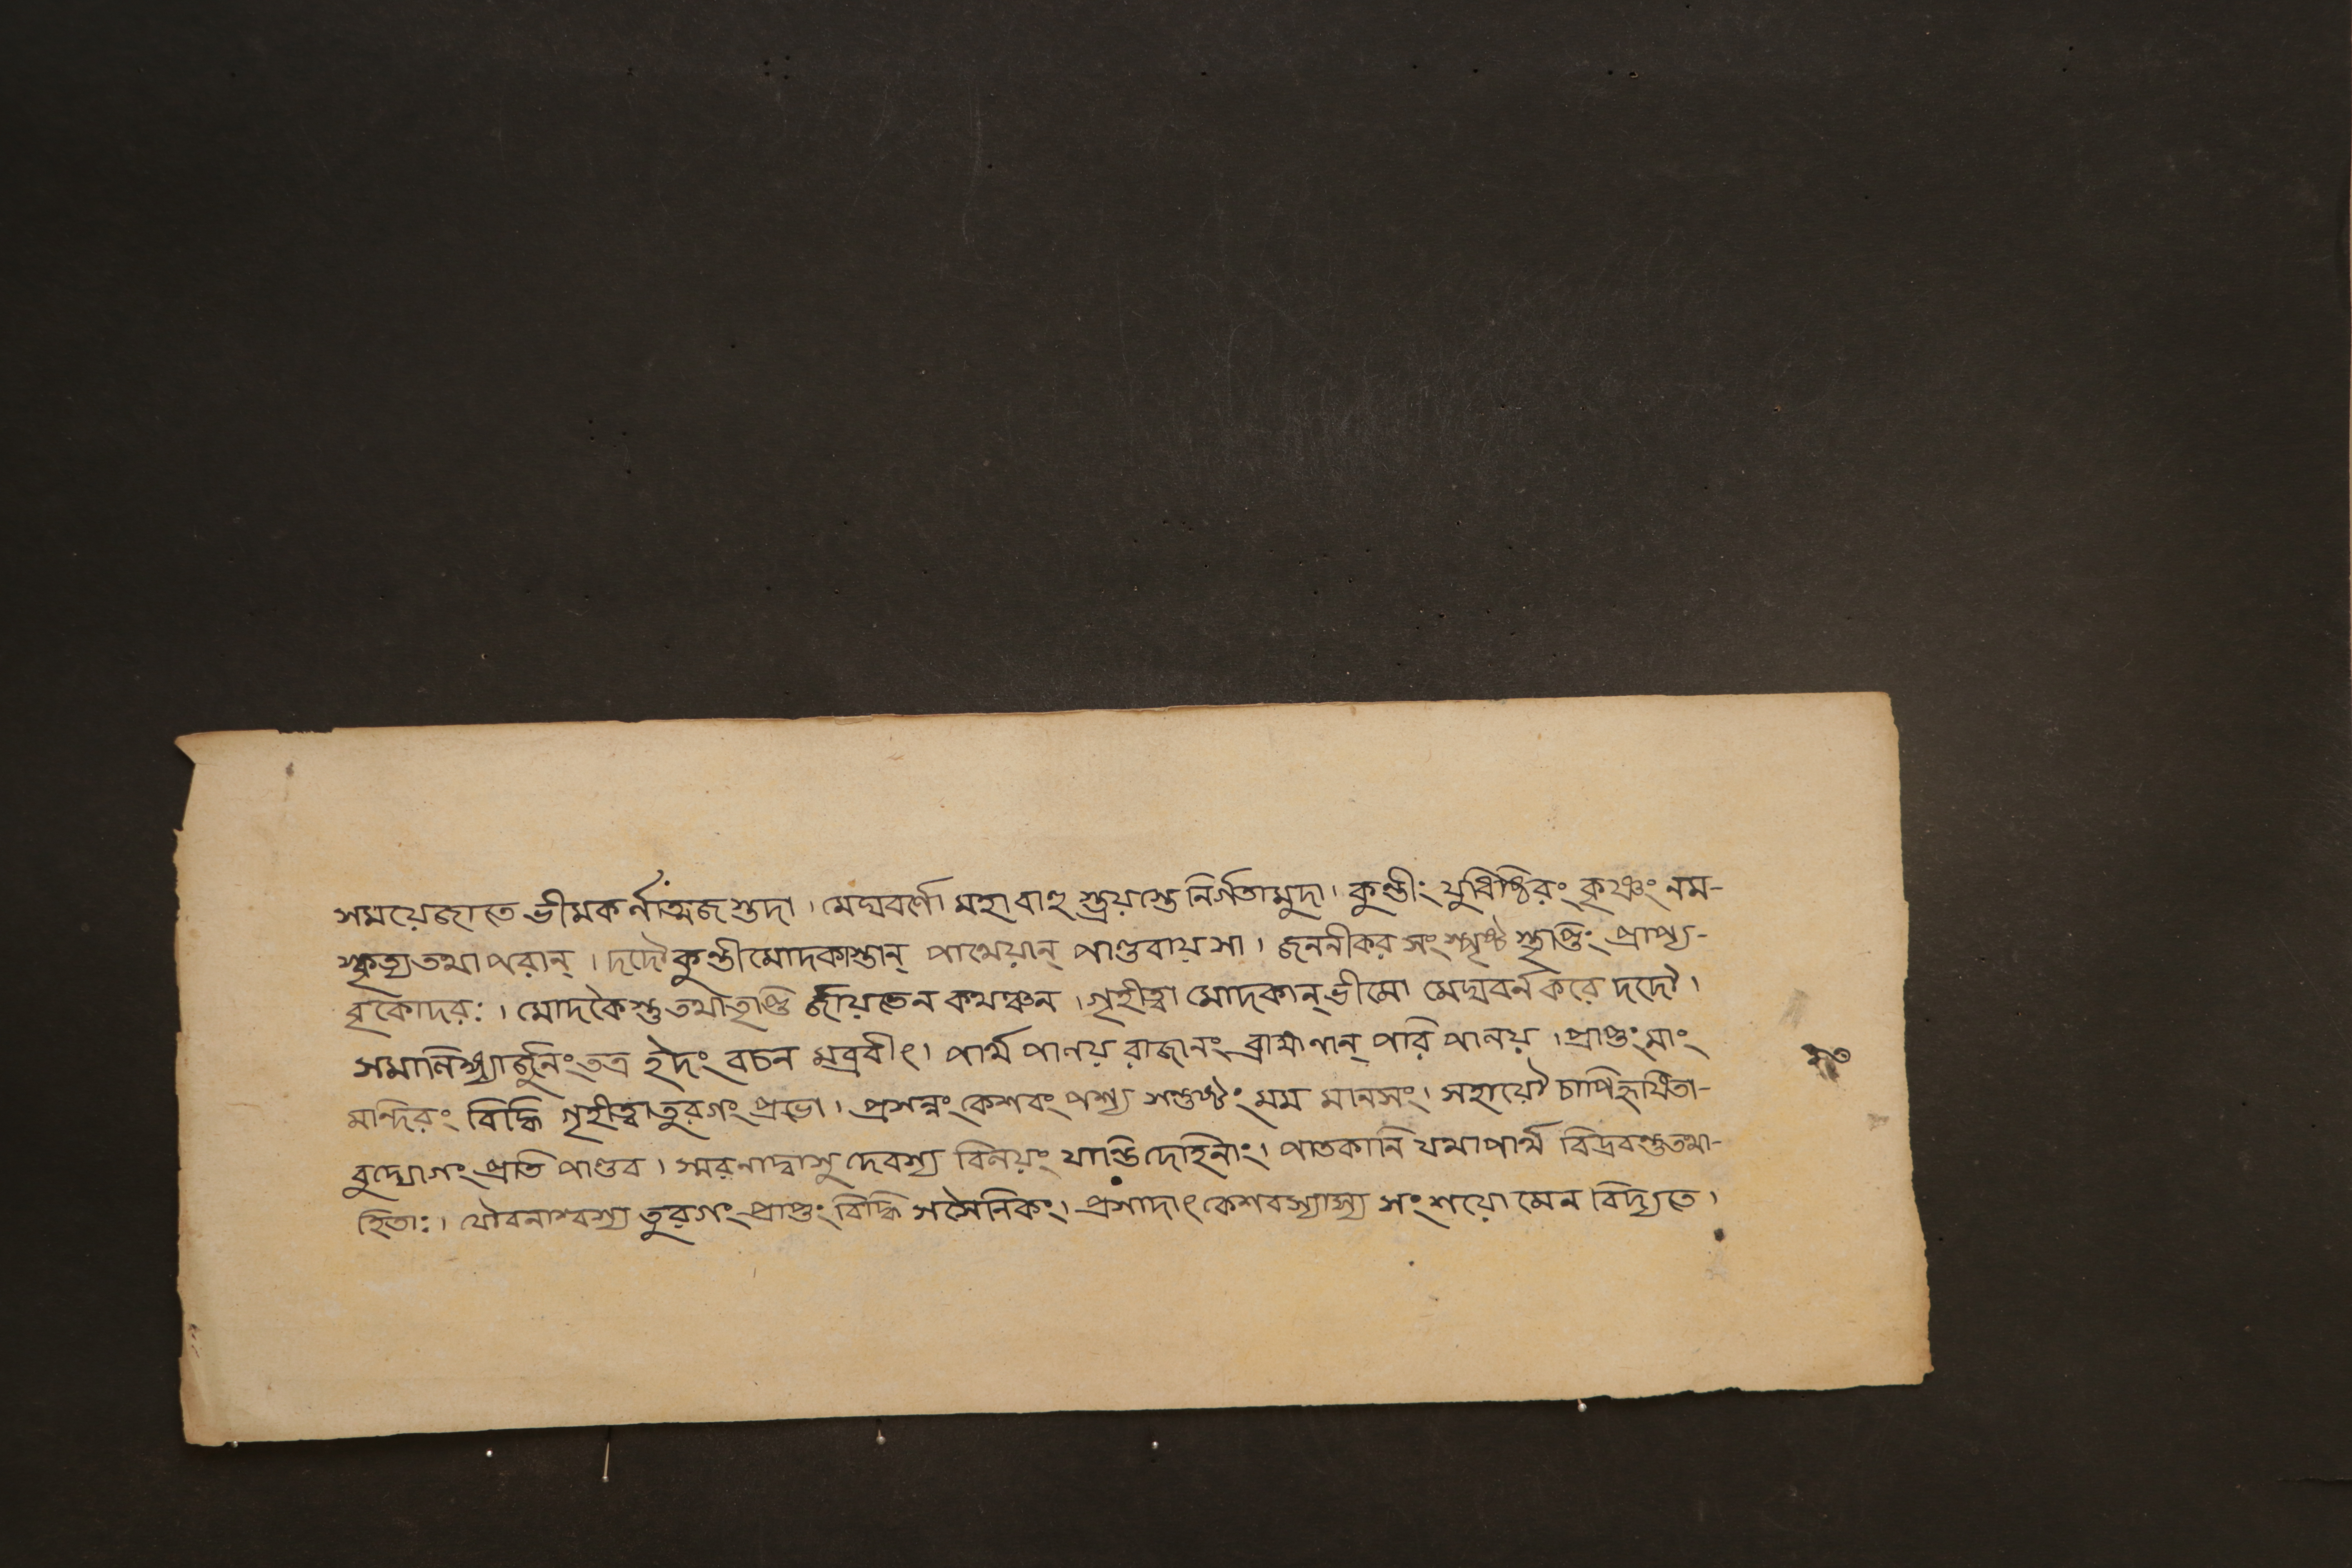 সময়েজাতে ভীমকর্ণাত্মজস্তদা। মেঘবর্ণো মহাবাহু স্ত্রয়স্তে নির্গতামুদা। কুন্তীং যুধিষ্ঠিরং কৃষ্ণং নম-
স্কৃত্যতথাপরান্। দদৌকুন্তীমোদকাস্তান্ পাথেয়ান্ পাণ্ডবায়সা। জননীকর সংস্পৃষ্ট স্তৃপ্তিং প্রাপ্য-
বৃকোদরঃ। মোদকৈস্তু তথাতৃপ্তি র্জায়তেন কথঞ্চন। গৃহীত্বা মোদকান্ ভীমো মেঘবর্নকরে দদৌ।
সমালিঙ্গ্যার্জুনিং তত্র ইদং বচন মব্রবীৎ। পার্থ পালয় রাজানং ব্রাহ্মণান্ পরি পালয়। প্রাপ্তং মাং
মন্দিরং বিদ্ধি গৃহীত্বাতুরগং প্রভো। প্রসন্নং কেশবং পশ্য সন্তুষ্টং মম মানসং। সহায়ৌ চাপিহৃষিতা-
বুদ্যোগং প্রতি পাণ্ডব। স্মরণাদ্বাসু দেবস্য বিলয়ং যান্তিদেহিনাং। পাতকানি যথাপার্থ বিদ্রবন্তুতথা-
হিতাঃ। যৌবনাশ্বস্য তুরগং প্রাপ্তং বিদ্ধি সসৈনিকং। প্রসাদাৎ কেশবস্যাস্য সংশয়ো মেন বিদ্যতে।